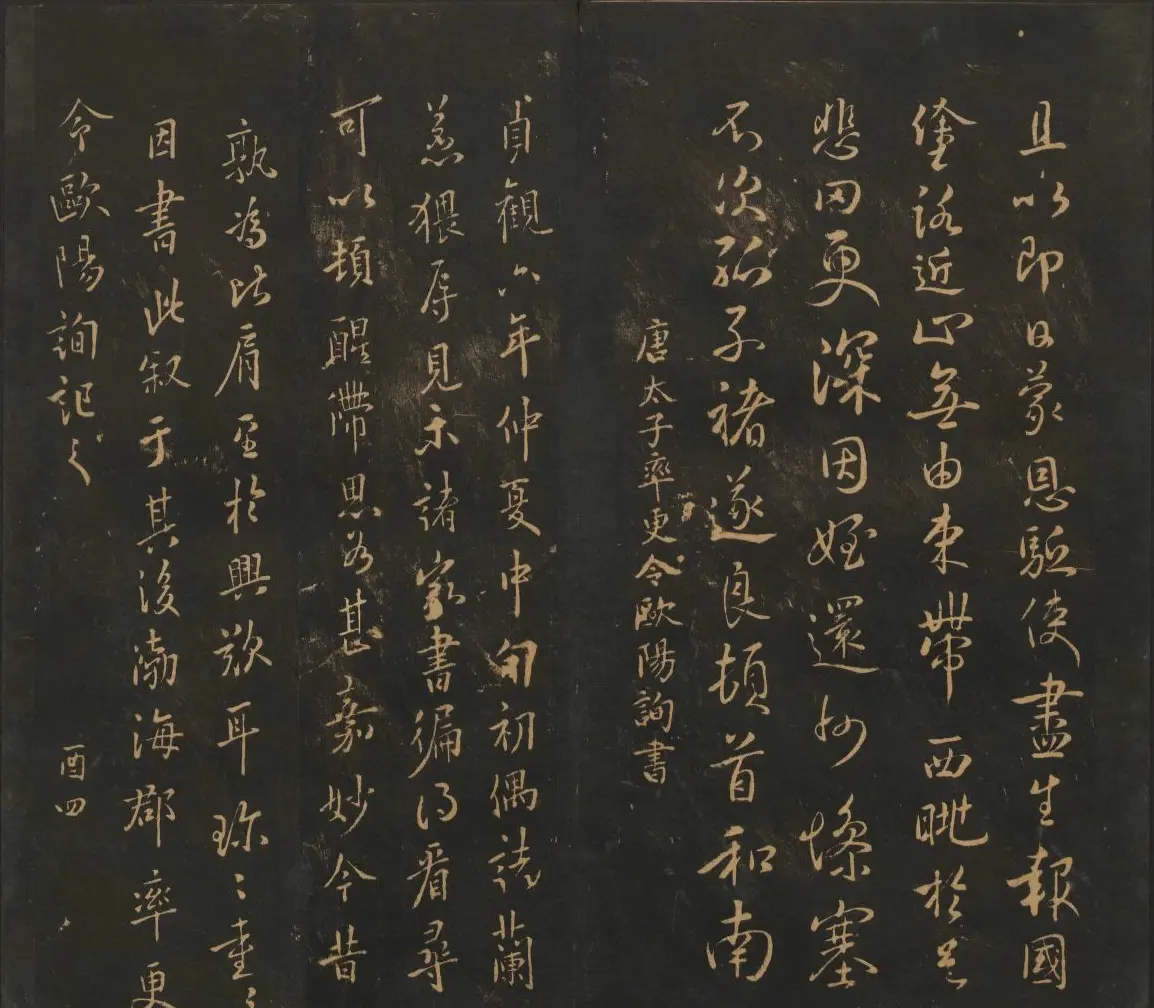 且以即日蒙恩驅使盡生報國
塗路近止無由束帶西眺於邑
悲罔更深因姪還州慘塞
不次孤子褚遂良頓首和南
唐太子率更令歐陽詢書
貞觀六年仲夏中旬初偶詣蘭
惹猥辱見示諸家書徧得看尋
可以頓醒滯思為甚嘉妙今昔
孰為比肩至於興歎耳珍〻重〻
因書此叙于其後渤海郡率更
令歐陽詢記之
酉四